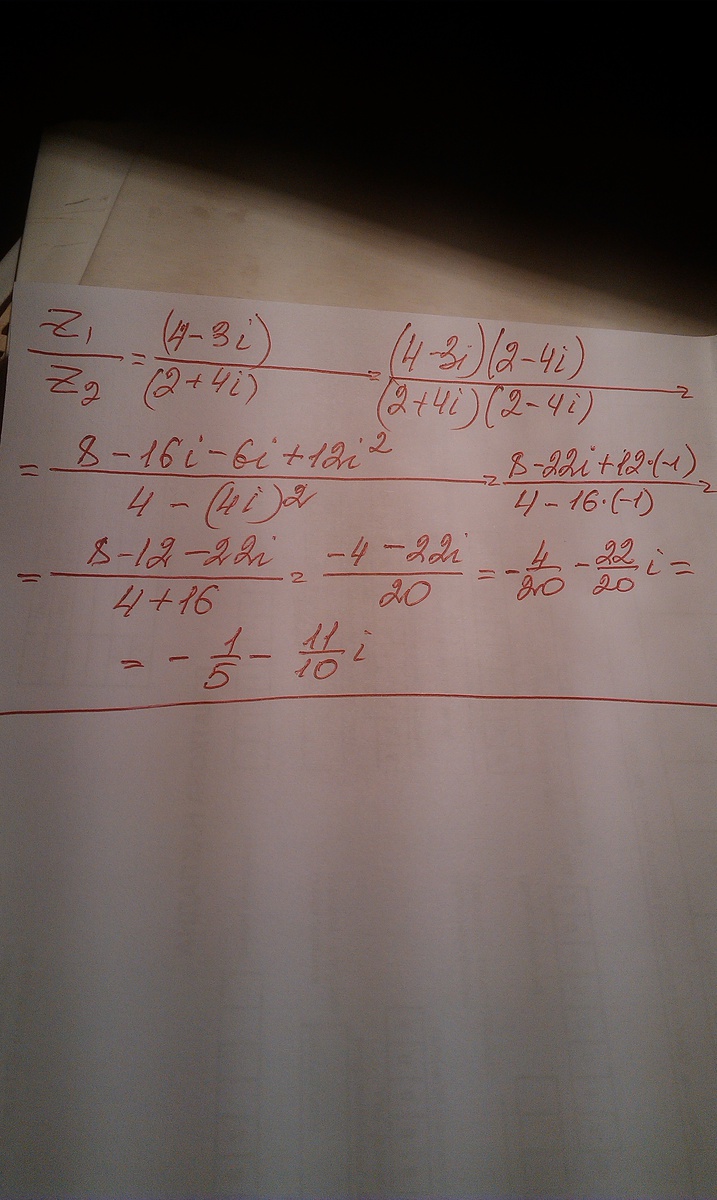 Z₁/Z₂ = (4-3i)/(2+4i) = (4-3i)(2-4i)/(2+4i)(2-4i) =
= 8-16i-6i+12i²/4-(4i)² = 8-22i+12·(-1)/4-16·(-1) =
= 8-12-22i/4+16 = -4-22i/20 = -4/20 - 22/20 i =
= - 1/5 - 11/10 i